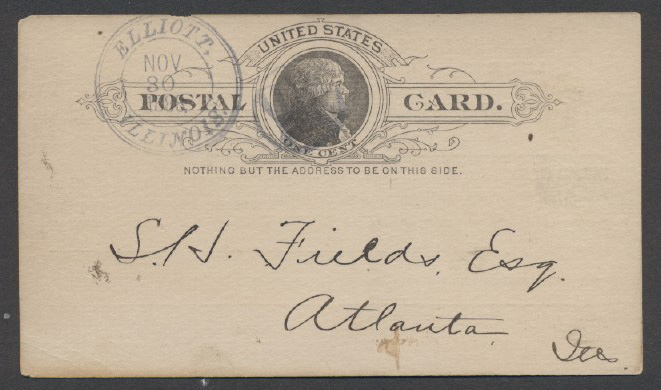 ELLIOTT,
NOV
30
ILLINOIS.
UNITED STATES
POSTAL CARD.
ONE CENT
NOTHING BUT THE ADDRESS TO BE ON THIS SIDE.
S.H. Fields, Esq.
Atlanta
Ills